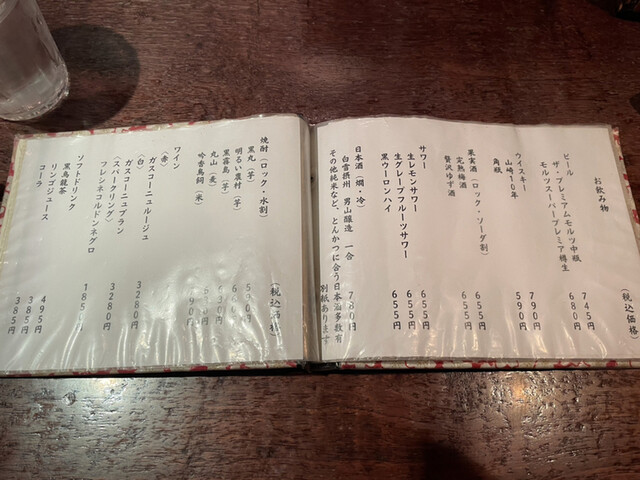 お飲み物
（税込価格）
ビール
ザ・プレミアムモルツ中瓶 745円
モルツスーパープレミア樽生 680円
ウイスキー
山崎10年 790円
角瓶 590円
果実酒（ロック・ソーダ割）
完熟梅酒 655円
贅沢ゆず酒 655円
サワー
生レモンサワー 655円
生グレープフルーツサワー 655円
黒ウーロンハイ 655円
日本酒（燗・冷）
白雪摂州 男山醸造 一合 780円
その他純米など、とんかつに合う日本酒多数有
別紙あります
焼酎（ロック・水割）
（税込価格）
黒丸（芋）
明るい農村（芋）
黒霧島（芋）
丸山（麦）
吟香鳥飼（米）
ワイン
（赤）
ガスコーニュルージュ 3280円
（白）
ガスコーニュブラン 3280円
（スパークリング）
フレシネコルドンネグロ
ソフトドリンク
黒烏龍茶 495円
リンゴジュース 385円
コーラ 385円